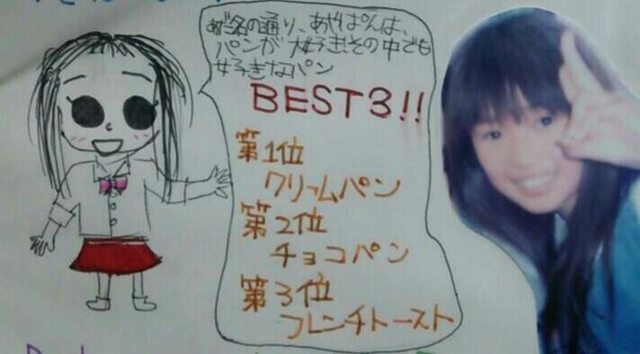 あだ名の通り、あやぱんは、
パンが大好き!その中でも
好きなパン
BEST3!!
第1位
クリームパン
第2位
チョコパン
第3位
フレンチトースト